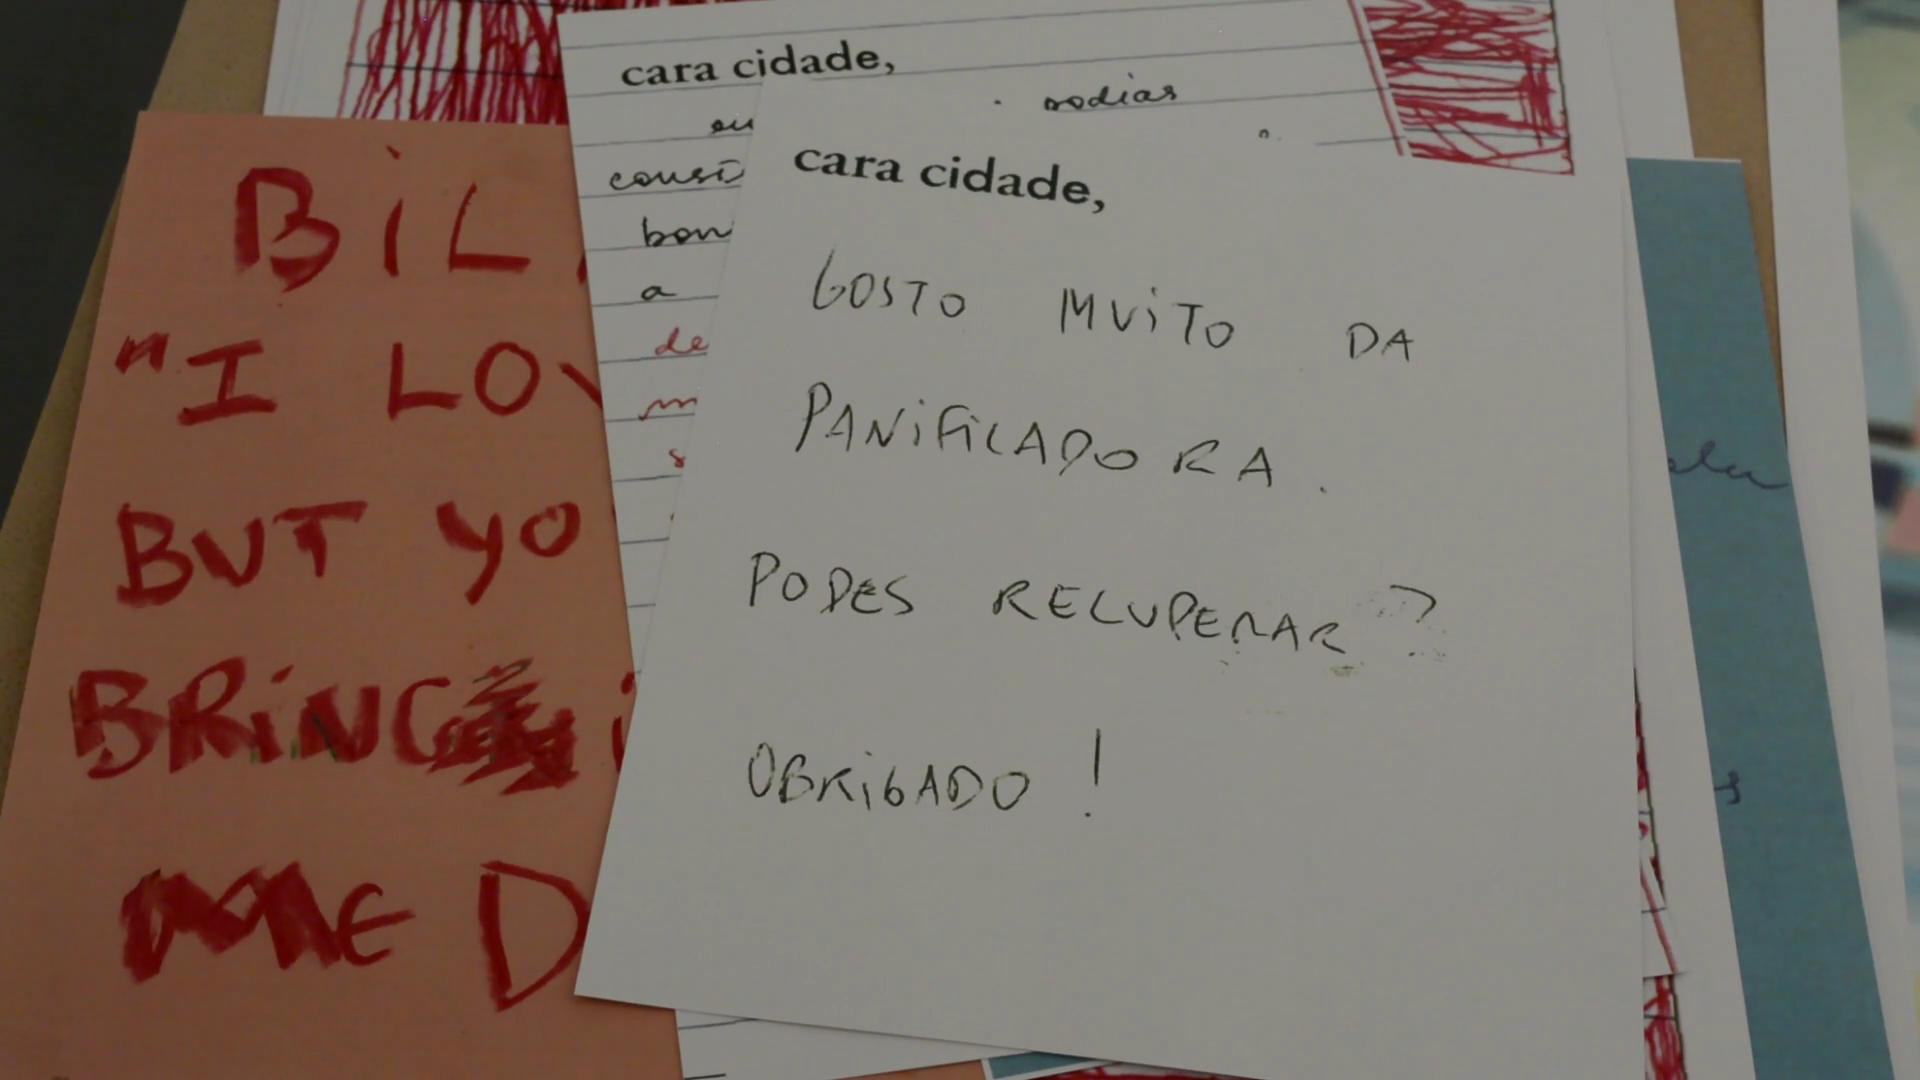 BiL
"I LOV
BUT YO
BRiNG
ME D
cara cidade,
ou
consi
bon
a
de
m
s
cara cidade,
GOSTO MUiTO DA
PANiFiCADORA.
PODES RECUPERAR?
OBRiGADO!